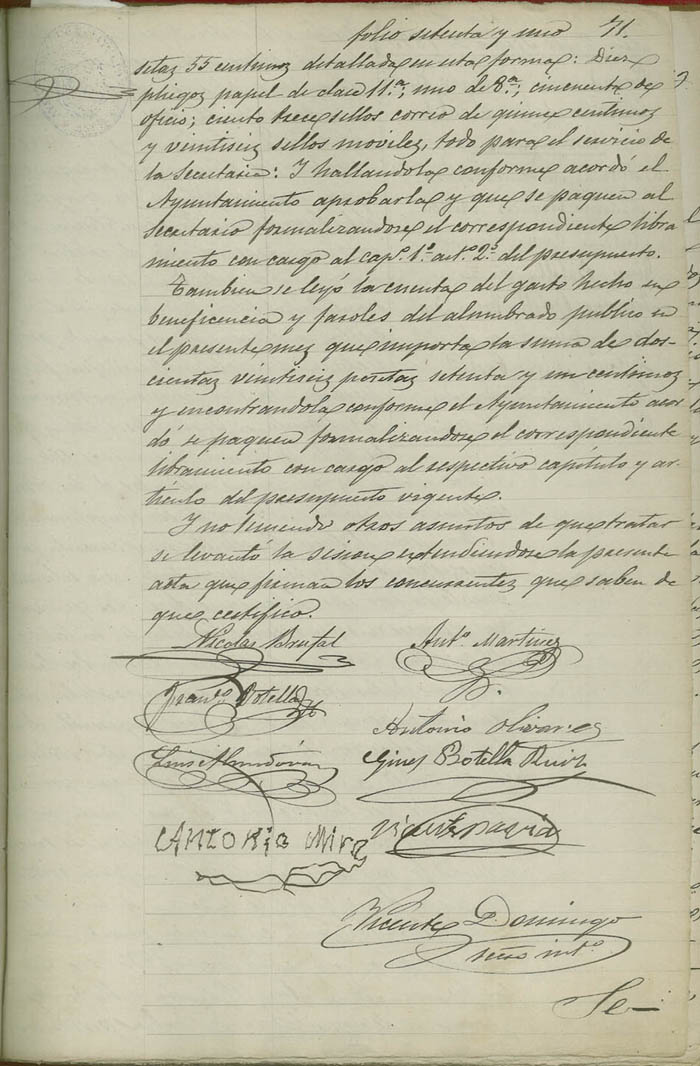 folio setenta y uno 71.
setas 55 centimos detallada en esta forma: Diez
pliegos papel de clase 11.ª; uno de 8.ª; cincuenta de
oficio; ciento trece sellos correo de quince centimos
y veintiseis sellos moviles, todo para el servicio
de la Secretaria: Y hallandola conforme acordó el
Ayuntamiento aprobarla y que se paguen al
Secretario formalizandose el correspondiente libra
miento con cargo al cap.º 1.º art.º 2.º del presupuesto.
Tambien se leyó la cuenta del gasto hecho en
beneficencia y faroles del alumbrado publico en
el presente mes que importa la suma de dos-
cientas vintiseis pesetas setenta y un centimos
y encontrandola conforme el Ayuntamiento acor
dó se paguen formalizandose el correspondiente
libramiento con cargo al respectivo capítulo y ar-
tículo del presupuesto vigente.
Y no teniendo otros asuntos de que tratar
se levantó la sesion extendiendose la presente
acta que firman los concurrentes que saben de
que certifico.
Nicolas Brufal Ant.º Martinez
Fran.co Botella
Antonio Olivares
Luis Almodóvar Gines Botella Ruiz
ANTONIO MIRA Vicente Pavia
Vicente Domingo
secro int.º
Se—